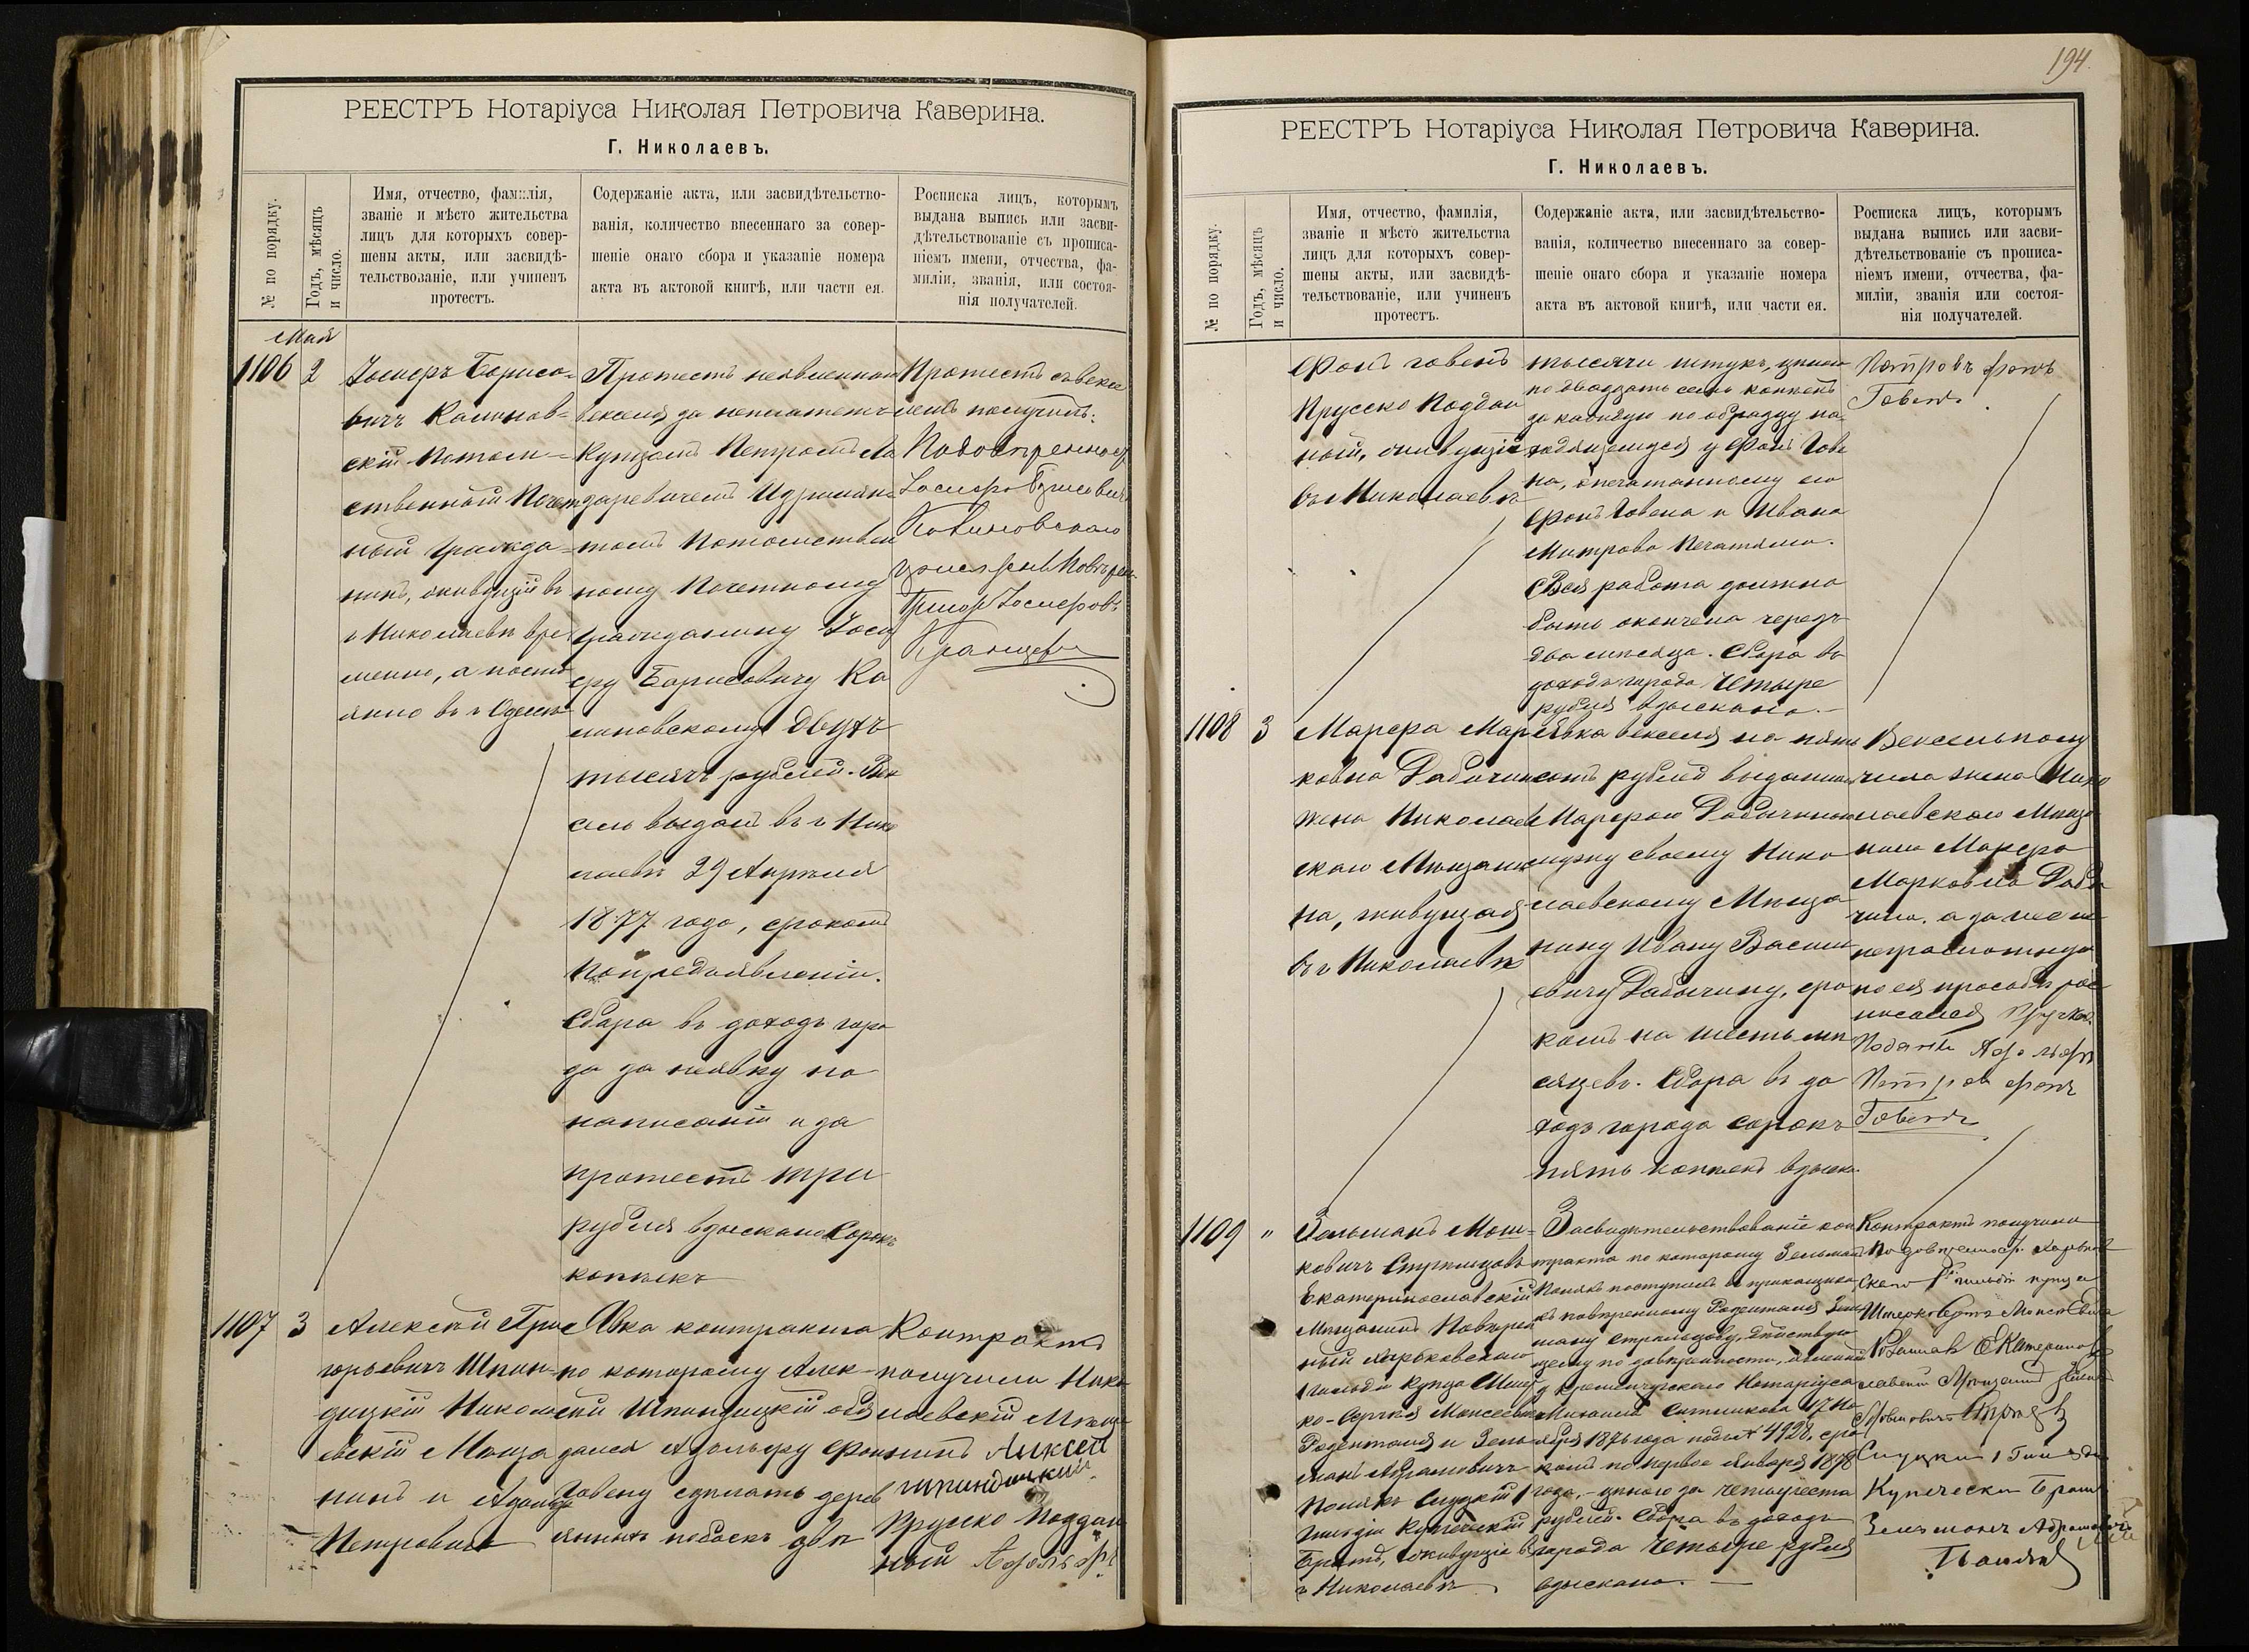 РЕЕСТРЪ Нотаріуса Николая Петровича Каверина.
Г. Николаевъ.
№ по порядку.
Годъ, мѣсяцъ
и число.
Имя, отчество, фамилія,
званіе и мѣсто жительства
лицъ для которыхъ совер-
шены акты, или засвидѣ-
тельствованіе, или учиненъ
протестъ.
Содержаніе акта, или засвидѣтельство-
ванія, количество внесеннаго за совер-
шеніе онаго сбора и указаніе номера
акта въ актовой книгѣ, или части ея.
Росписка лицъ, которымъ
выдана выпись или засви-
дѣтельствованіе съ прописа-
ніемъ имени, отчества, фа-
миліи, званія, или состоя-
нія получателей.
Мая
1106
2
Іосифъ Борисо-
вичъ
скій Потом-
ственный Почет
ный гражда-
нинъ, живущій въ
г Николаевѣ вре
менно, а посто
янно въ г Одессѣ
Протестъ
векселя за неплатежъ
Купцомъ Петромъ
томъ Потомствен
ному Почетному
гражданину Іоси
фу Борисовичу Ка
линовскому двухъ
тысячъ рублей. Век
сель выданъ въ г Нико
лаевѣ 29 Апрѣля
1877 года, срокомъ
по предъявленіи.
Сбора въ доходъ горо
да за неявку по
написанію и за
протестъ три
рубля взыскано Сорокъ
копѣекъ
Протестъ съ вексе
лемъ получилъ:
По довѣренности
Іосифа Борисовича
1107
3
Алексѣй Гри
горьевичъ Шпин-
дицкій Никола
евскій Мѣща
нинъ и Адольфъ
Петровичъ
Явка контракта
по которому Алек-
сѣй Шпиндицкій обя
зался Адольфу Фонъ
Говену сдѣлать дерев
янныхъ двѣ
Контрактъ
получили Нико
лаевскій Мѣща
нинъ Алексей
Шпиндицкий
Прусско поддан
ный Адольфъ
194.
РЕЕСТРЪ Нотаріуса Николая Петровича Каверина.
Г. Николаевъ.
№ по порядку.
Годъ, мѣсяцъ
и число.
Имя, отчество, фамилія,
званіе и мѣсто жительства
лицъ для которыхъ совер-
шены акты, или засвидѣ-
тельствованіе, или учиненъ
протестъ.
Содержаніе акта, или засвидѣтельство-
ванія, количество внесеннаго за совер-
шеніе онаго сбора и указаніе номера
акта въ актовой книгѣ, или части ея.
Росписка лицъ, которымъ
выдана выпись или засви-
дѣтельствованіе съ прописа-
ніемъ имени, отчества, фа-
миліи, званія или состоя-
нія получателей.
Фонъ говенъ
Прусско Поддан
ный, живущіе
въ г Николаевѣ
тысячи штукъ, цѣною
по двадцать семь копѣекъ
за каждую по образцу на
ходящемуся у Фонъ Гове
на, опечатанному его
Фонъ Говена и Ивана
Митрова Печатями.
Вся работа должна
быть окончена черезъ
два мѣсяца. Сбора въ
доходъ города Четыре
рубля взыскано.
Петровъ фонъ
Говенъ
1108
3
Марфа Мар
ковна
жена Николаев
скаго Мѣщани
на, живущая
въ г Николаевѣ
Явка векселя на пять
сотъ рублей выданнаго
Марфою
мужу своему Нико
лаевскому Мѣща
нину Ивану Васил
евичу сро
комъ на шесть мѣ
сяцевъ. Сбора въ до
ходъ города сорокъ
пять копѣекъ взыска
Вексель полу
чила жена Нико
лаевскаго Мѣща
нина Марфа
Марковна
чина. а за нее не
грамотную
по ея просьбѣ рос
писался Прусско
Поданый Адольфъ
Петровъ фонъ
Говенъ
1109
"
Зельманъ Мош-
ковичъ Стрѣльцовъ
Екатеринославскій
Мѣщанинъ Повѣрен
ный Харьковскаго
1 гильдіи Купца
Моисеевича
и Зель
манъ Абрамовичъ
Полякъ Слуцкій 1
гильдіи Купеческій
Братъ, живущіе въ
г Николаевѣ
Засвидѣтельствованіе кон
тракта по которому Зельманъ
Полякъ поступилъ въ прикащика
къ повѣренному
ману Стрѣльцову, дѣйствую
щему по довѣренности, явленной
у Кременчугскаго Нотаріуса
17 Но
ября 1876 года под № 4928, сро
комъ по первое Января 1878
года, цѣною за Четыреста
рублей. Сбора въ доходъ
города Четыре рубля
взыскано.
Контрактъ получили
По довѣренности Харьков
скаго 1й гильдіи купца
Екатерино
славскій Мѣщанинъ
Слуцкий 1 Гильдии
Купеческий Братъ
Зельманъ Абрамовичъ
Полякъ